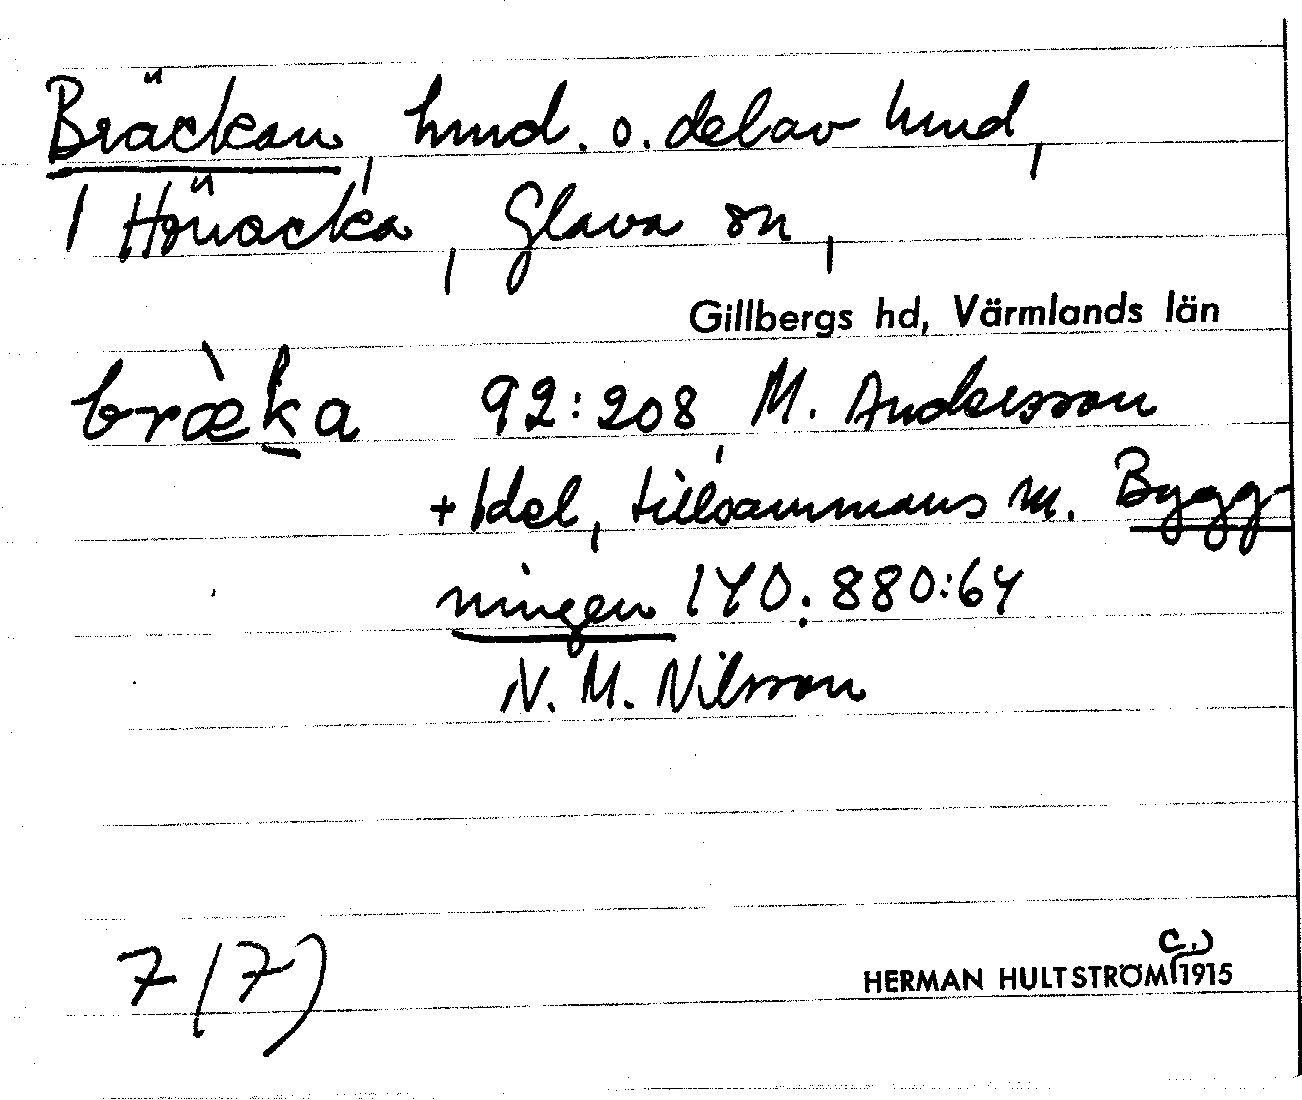 Bräckan, hmd. o. del av hmd,
i Hönacka, Glava sn,
Gillbergs hd, Värmlands län
bræ̀ka 92:208 M. Andersson
+ 1 del, tillsammans m. Bygg-
ningen 140:880:64
N. M. Nilsson
7 (7)
HERMAN HULTSTRÖM c.) 1915